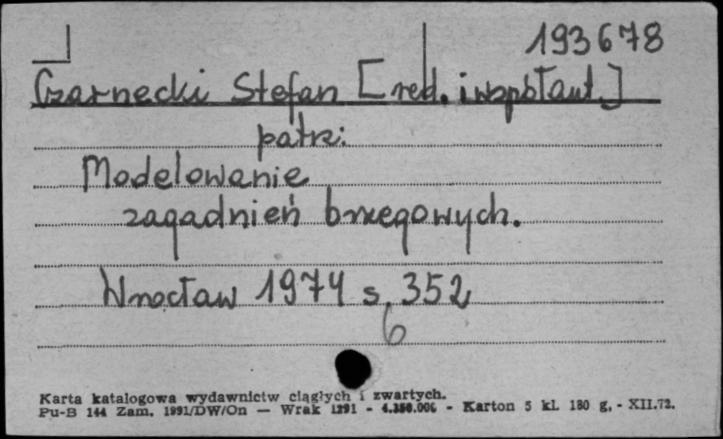 193678
Czarnecki Stefan [red. i współaut.]
patrz:
Modelowanie
zagadnień brzegowych.
Wrocław 1974 s. 352
6
Karta katalogowa wydawnictw ciągłych i zwartych.
Pu-B 144 Zam. 1991/DW/On — Wrak 1291 - 4.350.000 - Karton 5 kl. 180 g. - XII.72.